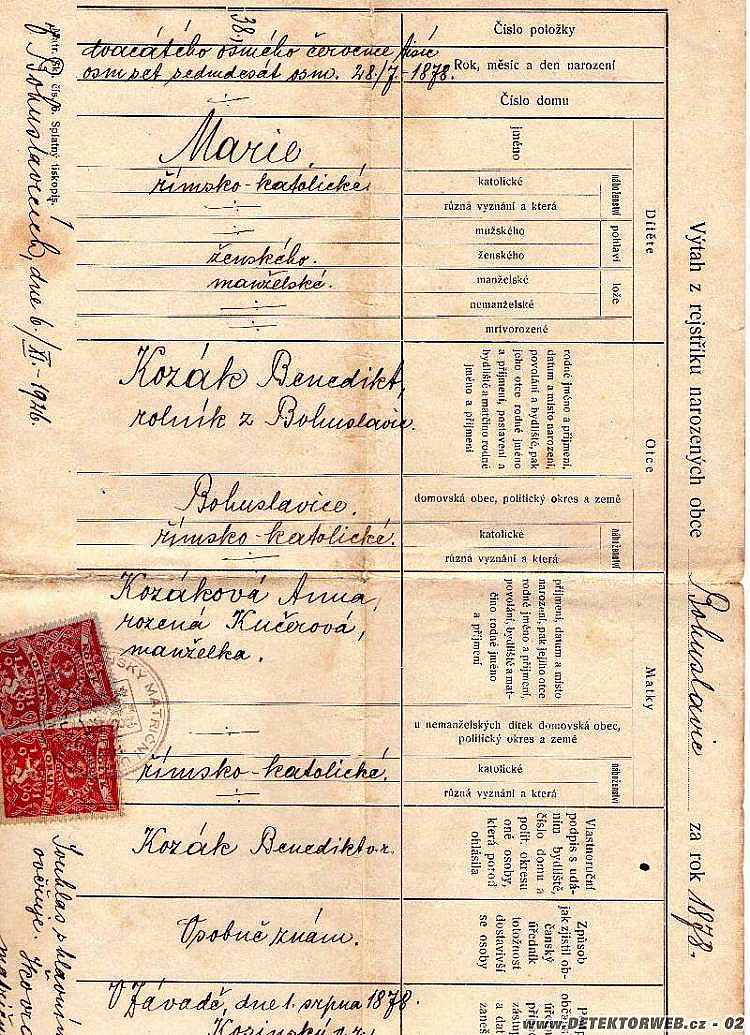 Výtah z rejstříku narozených obce Bohuslavic za rok 1878.
Číslo položky
38.
Rok, měsíc a den narození
dvacátého osmého července tisíc
osm set sedmdesát osm. 28./7.-1878.
Číslo domu
Dítěte
jméno
Marie.
náboženství
katolické
římsko-katolické.
různá vyznání a která
pohlaví
mužského
ženského
ženského.
lože
manželské
manželské.
nemanželské
mrtvorozené
Otce
rodné jméno a příjmení,
datum a místo narození,
povolání a bydliště, pak
jeho otce rodné jméno
a příjmení, postavení a
bydliště a matčino rodné
jméno a příjmení
Kozák Benedikt,
rolník z Bohuslavic.
domovská obec, politický okres a země
Bohuslavice.
náboženství
katolické
římsko-katolické.
různá vyznání a která
Matky
příjmení, datum a místo
narození, pak jejího otce
rodné jméno a příjmení,
povolání, bydliště a mat-
čino rodné jméno
a příjmení
Kozáková Anna,
rozená Kučerová,
manželka.
u nemanželských dítek domovská obec,
politický okres a země
náboženství
katolické
římsko-katolické.
různá vyznání a která
Vlastnoruční
podpis s udá-
ním bydliště,
číslo domu a
polit. okresu
oné osoby,
která porod
ohlásila
Kozák Benedikt v.r.
Způsob
jak zjistil ob-
čanský
úředník
totožnost
dostavivší
se osoby
Osobně znám.
V Závadě, dne 1. srpna 1878.
Kozinský v.r.
V Bohuslavicích, dne 6./XI.-1926.
Souhlas s hlavním
ověřuje.
MATRIČNÍ
www.DETEKTORWEB.cz - 02